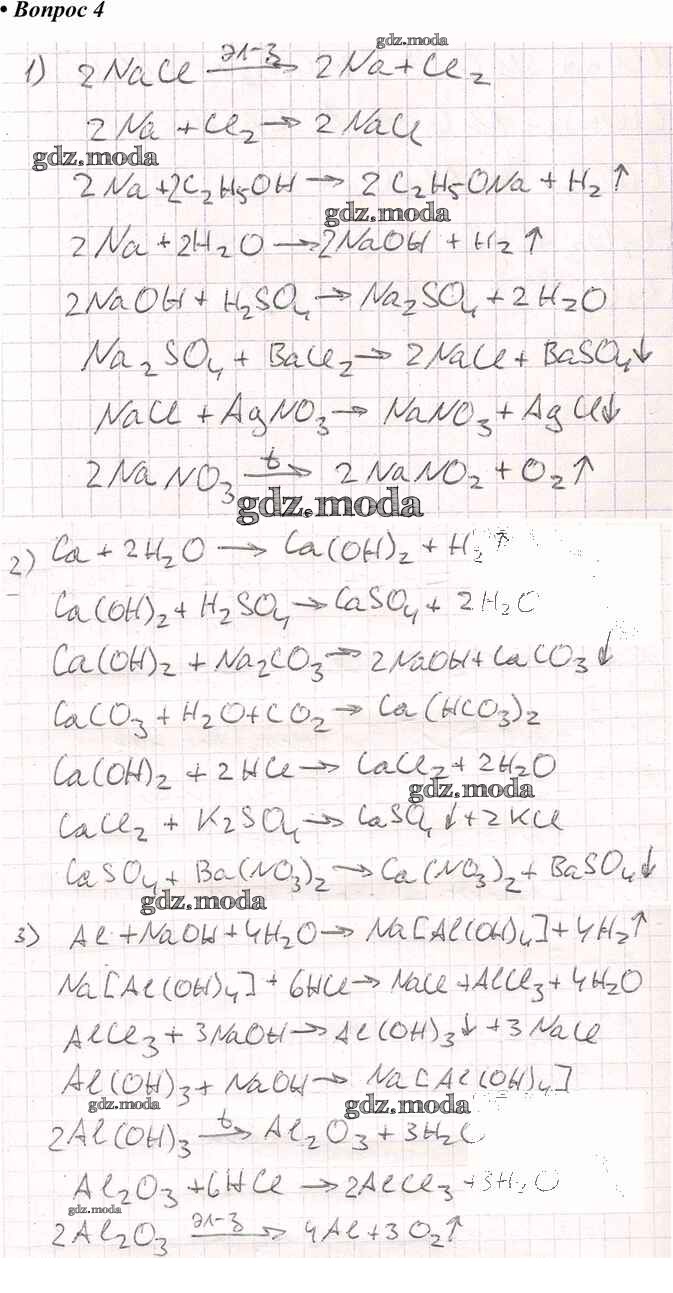 • Вопрос 4
gdz.moda
1) 2NaCl эл-з→ 2Na + Cl₂
2Na + Cl₂ → 2NaCl
gdz.moda
2Na + 2C₂H₅OH → 2C₂H₅ONa + H₂↑
gdz.moda
2Na + 2H₂O → 2NaOH + H₂↑
2NaOH + H₂SO₄ → Na₂SO₄ + 2H₂O
Na₂SO₄ + BaCl₂ → 2NaCl + BaSO₄↓
NaCl + AgNO₃ → NaNO₃ + AgCl↓
2NaNO₃ t→ 2NaNO₂ + O₂↑
gdz.moda
2) Ca + 2H₂O → Ca(OH)₂ + H₂↑
Ca(OH)₂ + H₂SO₄ → CaSO₄ + 2H₂O
Ca(OH)₂ + Na₂CO₃ → 2NaOH + CaCO₃↓
CaCO₃ + H₂O + CO₂ → Ca(HCO₃)₂
Ca(OH)₂ + 2HCl → CaCl₂ + 2H₂O
gdz.moda
CaCl₂ + K₂SO₄ → CaSO₄↓ + 2KCl
CaSO₄ + Ba(NO₃)₂ → Ca(NO₃)₂ + BaSO₄↓
gdz.moda
3) Al + NaOH + 4H₂O → Na[Al(OH)₄] + 4H₂↑
Na[Al(OH)₄] + 6HCl → NaCl + AlCl₃ + 4H₂O
AlCl₃ + 3NaOH → Al(OH)₃↓ + 3NaCl
Al(OH)₃ + NaOH → Na[Al(OH)₄]
gdz.moda gdz.moda
2Al(OH)₃ t→ Al₂O₃ + 3H₂O
Al₂O₃ + 6HCl → 2AlCl₃ + 3H₂O
gdz.moda
2Al₂O₃ эл-з→ 4Al + 3O₂↑